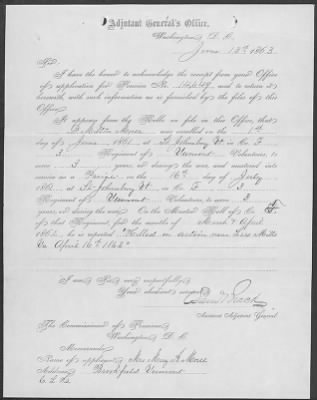 Adjutant General's Office,
Washington, D. C.
June 13th, 1863
Sir:
I have the honor to acknowledge the receipt from your Office
of application for Pension No. and to return it
herewith, with such information as is furnished by the files of this
Office.
It appears from the Rolls on file in this Office, that
Milton Morse was enrolled on the 1st
day of June 1861, at St Johnsbury Vt in Co. F
3 Regiment of Vermont Volunteers, to
serve 3 years, or during the war, and mustered into
service as a Private on the 16th day of July
1861, at St Johnsbury Vt, in Co. F 3
Regiment of Vermont Volunteers, to serve 3
years, or during the war. On the Muster Roll of Co. F
of that Regiment, for the months of March & April
1862, he is reported "Killed in action near Lees Mills
Va April 16th 1862"
I am, Sir, very respectfully,
Your obedient servant,
Assistant Adjutant General
The Commissioner of Pensions,
Washington, D. C.
Memoranda:
Name of applicant, Mrs Mary A. Morse
Address, Brookfield Vermont